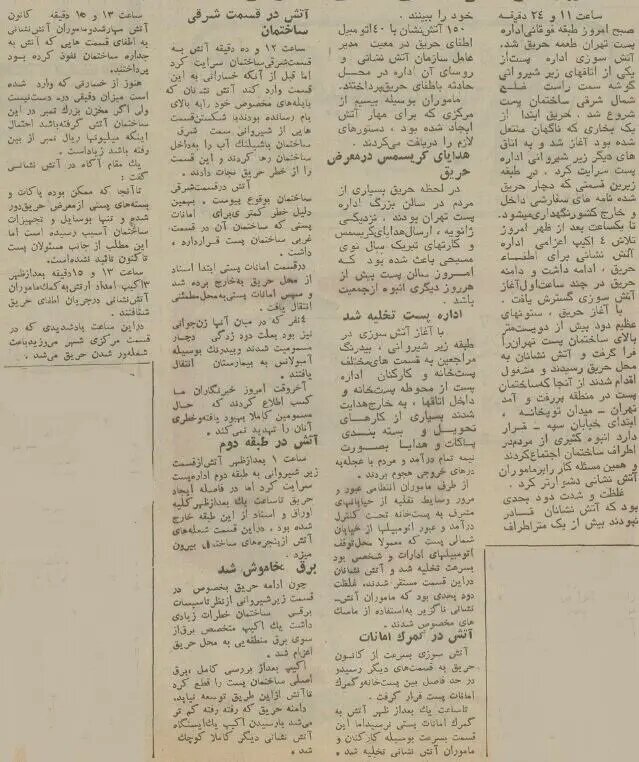 ساعت ۱۱ و ۲۴ دقیقه
صبح امروز طبقه فوقانی اداره
پست تهران طعمه حریق شد.
آتش سوزی اداره پست از
یکی از اتاقهای زیر شیروانی
گوشه سمت راست ضلع
شمال شرقی ساختمان پست
شروع شد. ابتدا از
یک بخاری که ناگهان مشتعل
شده بود آغاز شد و به اتاق
های دیگر زیر شیروانی اداره
پست سرایت کرد. در طبقه
زیرین قسمتی که دچار حریق
شده نامه های سفارشی داخل
و خارج کشور نگهداری میشود.
تا یکساعت بعد از ظهر امروز
تلاش ۴ اکیپ اعزامی اداره
آتش نشانی برای اطفاء
حریق، ادامه داشت و دامنه
حریق در چند ساعت اول آغاز
آتش سوزی گسترش یافت.
با آغاز حریق، ستونهای
عظیم دود بیش از دویست متر
بالای ساختمان پست تهران را
فرا گرفت و آتش نشانان به
محل حریق رسیدند و مشغول
اقدام شدند از آنجا که ساختمان
پست در منطقه پررفت و آمد
تهران ـ میدان توپخانه،
ابتدای خیابان سپه ـ قرار
دارد انبوه کثیری از مردم در
اطراف ساختمان اجتماع کردند
و همین مسئله کار را بر ماموران
آتش نشانی دشوارتر کرد.
غلظت و شدت دود بحدی
بود که آتش نشانان قادر
نبودند بیش از یک متر اطراف
خود را ببینند.
۱۵۰ آتش نشان با ۴۰ اتومبیل
اطفای حریق در معیت مدیر
عامل سازمان آتش نشانی و
روسای آن اداره در محل
حادثه باطفای حریق پرداختند.
ماموران بوسیله بیسیم از
مرکزی که برای مهار آتش
ایجاد شده بود، دستورهای
لازم را دریافت می‌کردند.
هدایای کریسمس در معرض
حریق
در لحظه حریق بسیاری از
مردم در سالن بزرگ اداره
پست تهران بودند، نزدیکی
ژانویه، ارسال هدایای کریسمس
و کارتهای تبریک سال نوی
مسیحی باعث شده بود که
امروز سالن پست بیش از
هر روز دیگری انبوه از جمعیت
باشد.
اداره پست تخلیه شد
با آغاز آتش سوزی در
طبقه زیر شیروانی، بیدرنگ
مراجعین به قسمت های مختلف
پستخانه و کارکنان اداره
پست از محوطه پستخانه و
داخل اتاقها، به خارج هدایت
شدند بسیاری از کارهای
تحویل و بسته بندی
پاکات و هدایا بصورت
نیمه تمام درآمد و مردم با عجله به
درهای خروجی هجوم بردند.
از طرف ماموران انتظامی عبور و
مرور وسایط نقلیه از خیابانهای
مشرف به پستخانه تحت کنترل
درآمد و عبور اتومبیلها از خیابان
شمالی پست که معمولا محل توقف
اتومبیلهای ادارات و شخصی بود
بسرعت تخلیه شد و آتش نشانان
در این قسمت مستقر شدند. غلظت
دود بحدی بود که ماموران آتش‌ـ
نشانی ناگزیر به استفاده از ماسک
های مخصوص شدند.
آتش در گمرک امانات
آتش سوزی بسرعت از کانون
حریق به قسمت‌های دیگر رسید و
در حد فاصل بین پستخانه و گمرک
امانات پست قرار گرفت.
تا ساعت یک بعد از ظهر آتش به
گمرک امانات پستی نرسید اما این
قسمت بسرعت بوسیله کارکنان و
ماموران آتش نشانی تخلیه شد.
آتش در قسمت شرقی
ساختمان
ساعت ۱۲ و ده دقیقه آتش به
قسمت شرقی ساختمان سرایت کرد
اما قبل از آنکه خساراتی به این
قسمت وارد کند آتش نشانان که
باپله‌های مخصوص خود را به بالای
بام رسانده بودند، با شکستن قسمت
هایی از شیروانی سمت شرقی
ساختمان باشیلنگ آب را به داخل
ساختمان رها کردند و این قسمت
را از خطر حریق نجات دادند.
آتش در قسمت شرقی
ساختمان بوقوع پیوست. بهمین
دلیل خطر کمتری برای امانات
پستی که ساختمان آن در قسمت
غربی ساختمان پست قرار دارد،
داشت.
در قسمت امانات پستی ابتدا اسناد
از محل حریق به خارج برده شد
و سپس امانات پستی به محل مطمئنی
انتقال یافت.
۴ نفر که در میان آنها زن جوانی
نیز بود بعلت دود زدگی دچار
مسمومیت شدند و بیدرنگ بوسیله
آمبولانس به بیمارستان انتقال
یافتند.
آخر وقت امروز خبرنگاران ما
کسب اطلاع کردند که حال
مسمومین کاملا بهبود یافته و خطری
آنان را تهدید نمی‌کند.
آتش در طبقه دوم
ساعت ۱ بعد از ظهر آتش از قسمت
زیر شیروانی به طبقه دوم اداره پست
سرایت کرد اما در فاصله ایجاد
حریق تا ساعت یک بعد از ظهر کلیه
اوراق و اسناد از این طبقه خارج
شده بود. در این قسمت شعله‌های
آتش از پنجره‌های ساختمان بیرون
میزد.
برق خاموش شد
چون ادامه حریق بخصوص در
قسمت زیر شیروانی از نظر تاسیسات
برقی ساختمان خطرات زیادی
داشت یک اکیپ متخصص برق از
سوی برق منطقه‌یی به محل حریق
اعزام شد.
اکیپ بعد از بررسی کامل، برق
اصلی ساختمان پست را قطع کرد
تا آتش از این طریق توسعه نیابد.
دامنه حریق که رفته رفته کم تر
می‌شد با رسیدن اکیپ یک ایستگاه
آتش نشانی دیگر کاملا کوچک
شد.
ساعت ۱۳ و ۱۵ دقیقه کانون
آتش مهار شد و ماموران آتش نشانی
به اطفای قسمت هایی که آتش به
جداره ساختمان نفوذ کرده بود
پرداختند.
هنوز از خسارتی که وارد شده
است میزان دقیقی در دست نیست
ولی اگر مخزن بزرگ تمبر در این
ساختمان آتش گرفته باشد احتمال
اینکه میلیونها ریال تمبر از بین
رفته باشد زیاد است.
یک مقام آگاه در آتش نشانی
گفت:
تا آنجا که ممکن بوده پاکات و
بسته‌های پستی از معرض حریق دور
شده و تنها بوسایل و تجهیزات
ساختمان آسیب رسیده است اما
این مطلب از جانب مسئولان پست
تاکنون تائید نشده است.
ساعت ۱۳ و ۱۵ دقیقه بعد از ظهر
۱۳ اکیپ امداد ارتش به کمک ماموران
آتش نشانی در جریان اطفای حریق
شتافتند.
در این ساعت باد شدیدی که در
قسمت مرکزی شهر می‌وزید باعث
شعله‌ور شدن حریق می‌شد.